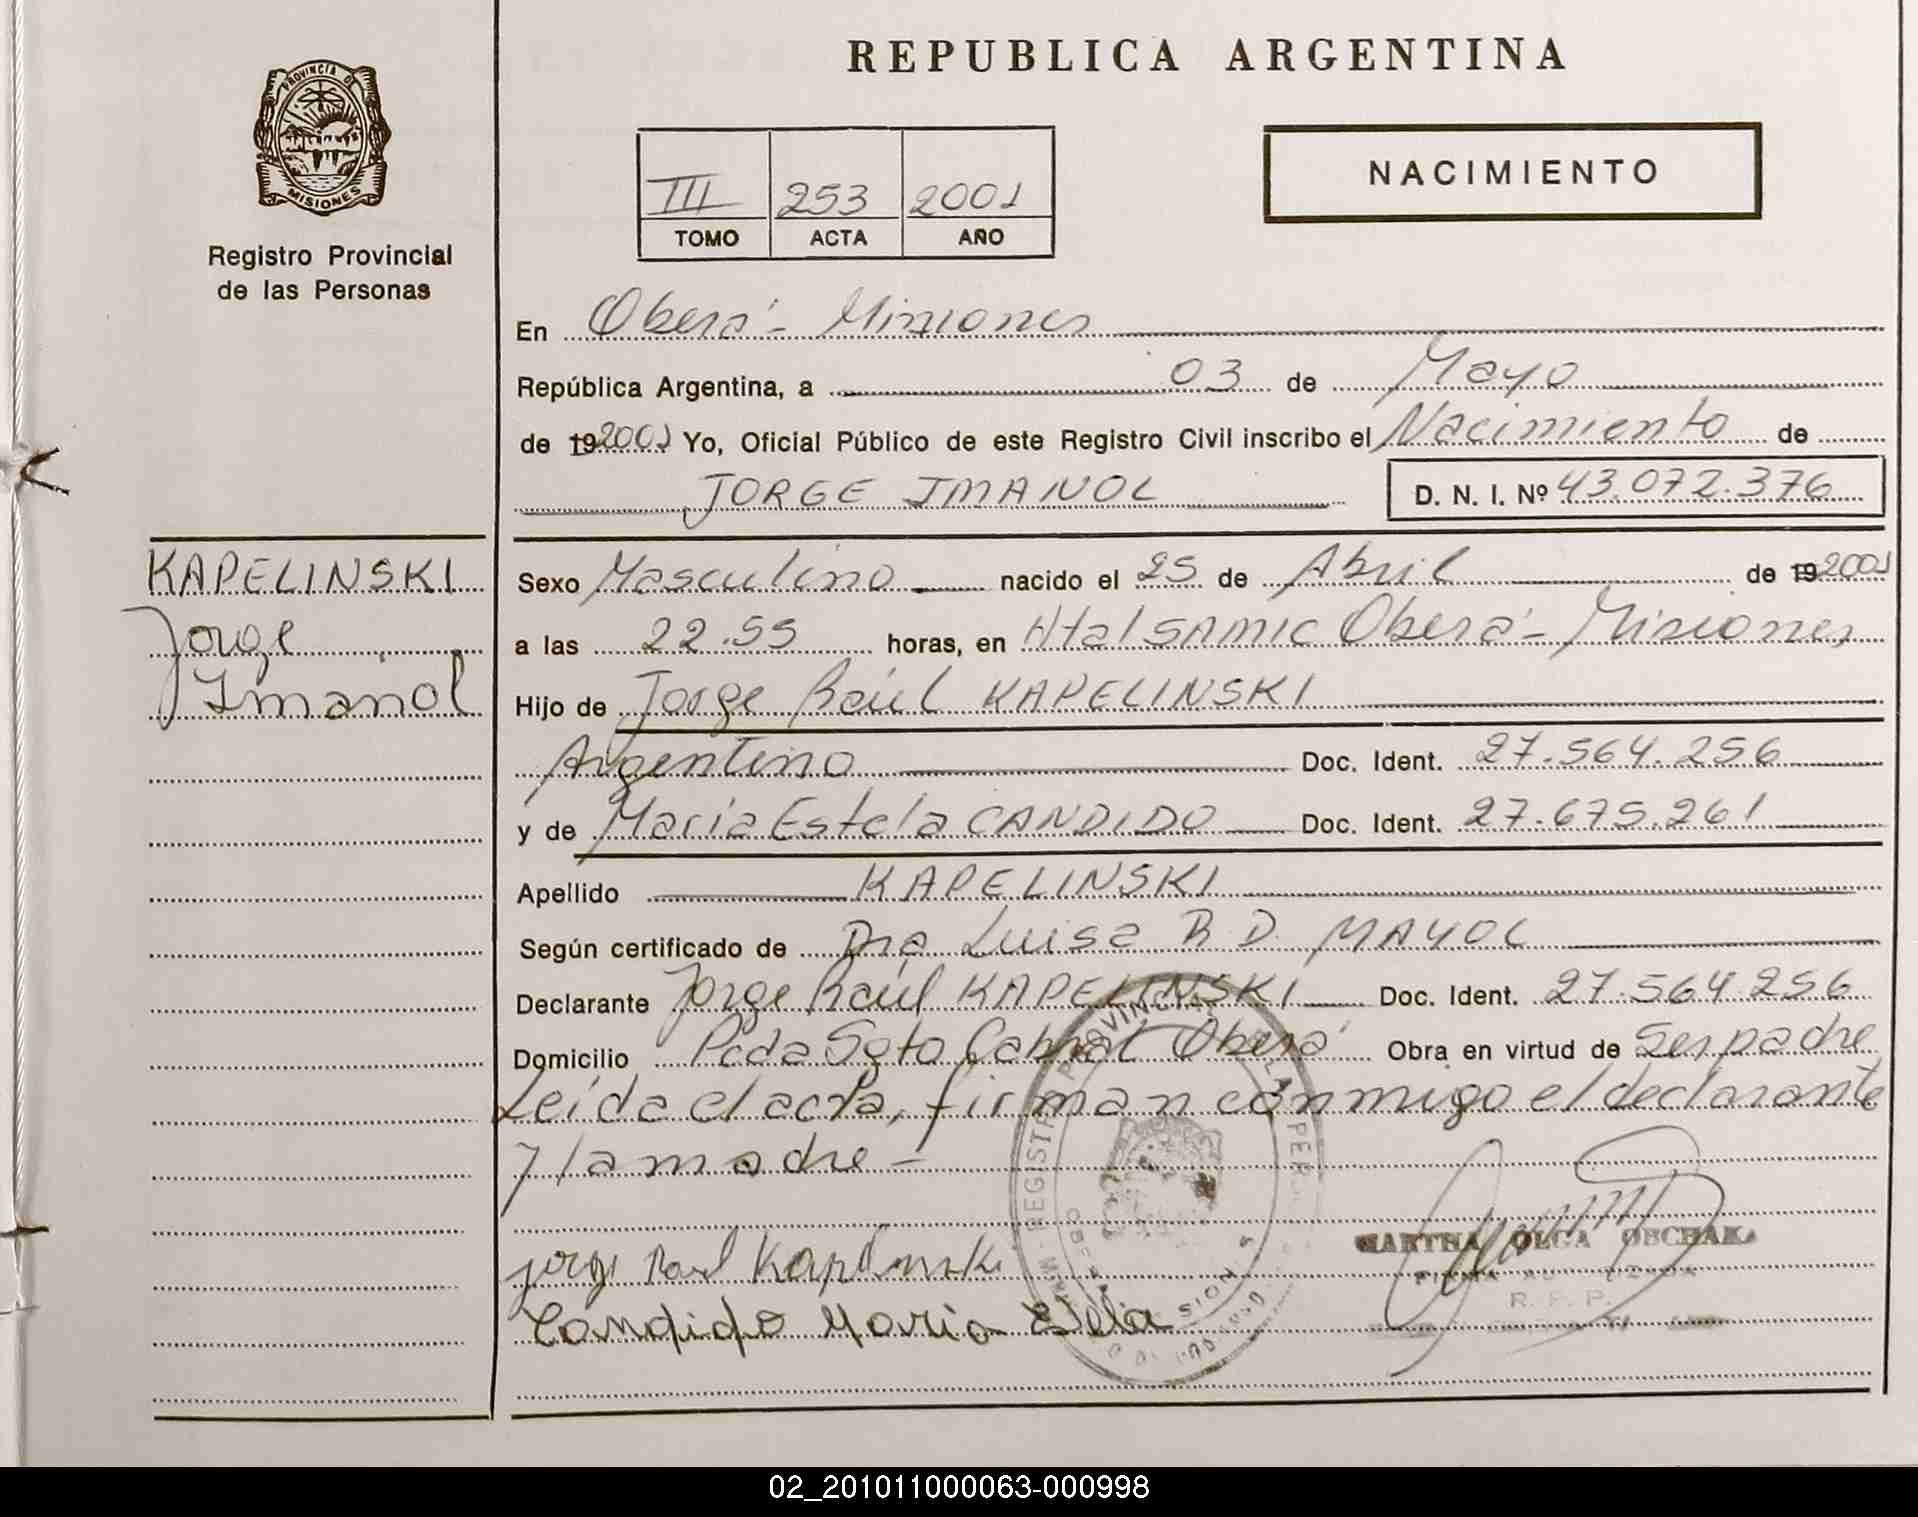 REPUBLICA ARGENTINA
PROVINCIA DE
MISIONES
Registro Provincial
de las Personas
NACIMIENTO
III 253 2001
TOMO ACTA AÑO
En Oberá - Misiones
República Argentina, a 03 de Mayo
de 192001 Yo, Oficial Público de este Registro Civil inscribo el Nacimiento de
JORGE IMANOL D. N. I. Nº 43.072.376
KAPELINSKI
Jorge
Imanol
Sexo Masculino nacido el 25 de Abril de 192001
a las 22.55 horas, en Htal SAMIC Oberá - Misiones
Hijo de Jorge Raúl KAPELINSKI
Argentino Doc. Ident. 27.564.256
y de María Estela CANDIDO Doc. Ident. 27.675.261
Apellido KAPELINSKI
Según certificado de Dra Luisa R D. MAYOL
Declarante Jorge Raúl KAPELINSKI Doc. Ident. 27.564.256
Domicilio Pcda Sgto Cabral Oberá Obra en virtud de Ser padre
Leída el acta, firman conmigo el declarante
y la madre -
Jorge Raul Kapelinski
Candido Maria Estela
MARTHA OLGA
R. P. P.
02_201011000063-000998